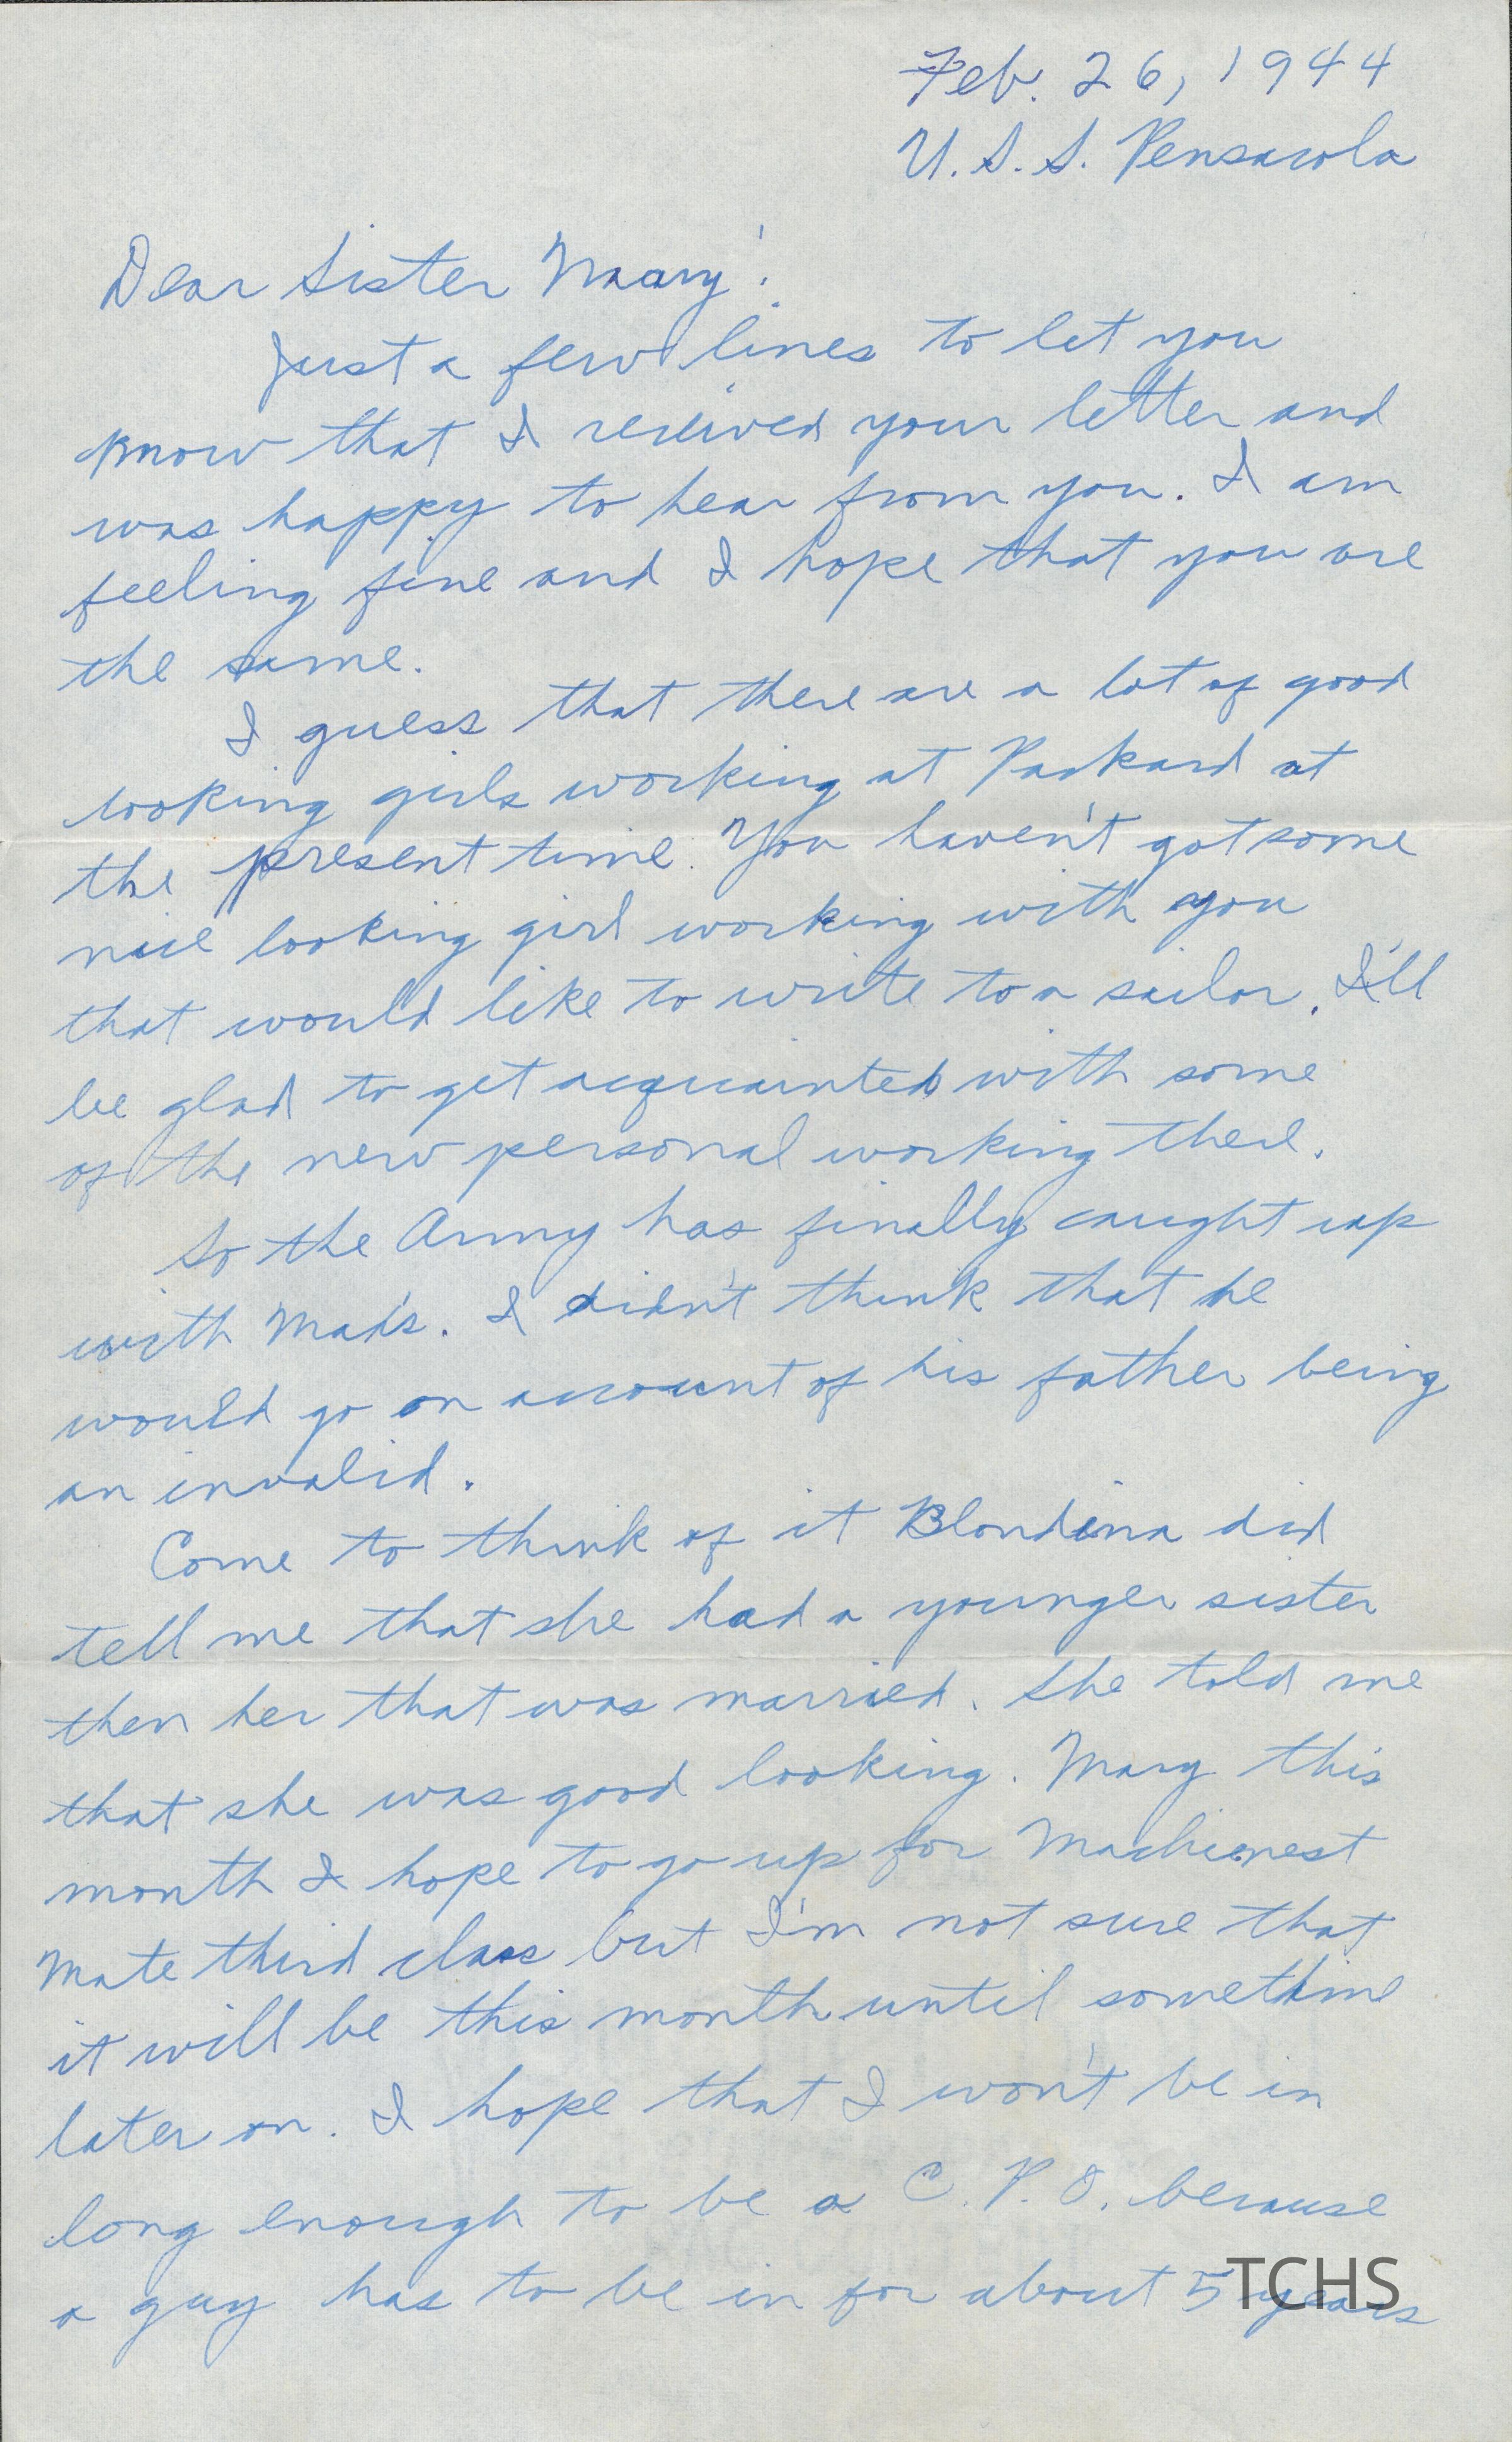 Feb. 26, 1944
U.S.S. Pensacola
Dear Sister Mary:
Just a few lines to let you
know that I recived your letter and
was happy to hear from you. I am
feeling fine and I hope that you are
the same.
I guess that there are a lot of good
looking girls working at Packard at
the present time. You haven't got some
nice looking girl working with you
that would like to write to a sailor. I'll
be glad to get acquainted with some
of the new personal working there.
So the Army has finally caught up
with Mads. I didn't think that he
would go on account of his father being
an invalid.
Come to think of it Blondina did
tell me that she had a younger sister
then her that was married. She told me
that she was good looking. Mary this
month I hope to go up for Machienest
Mate third class but I'm not sure that
it will be this month until sometime
later on. I hope that I won't be in
long enough to be a C.P.O. because
a guy has to be in for about 5 years
TCHS